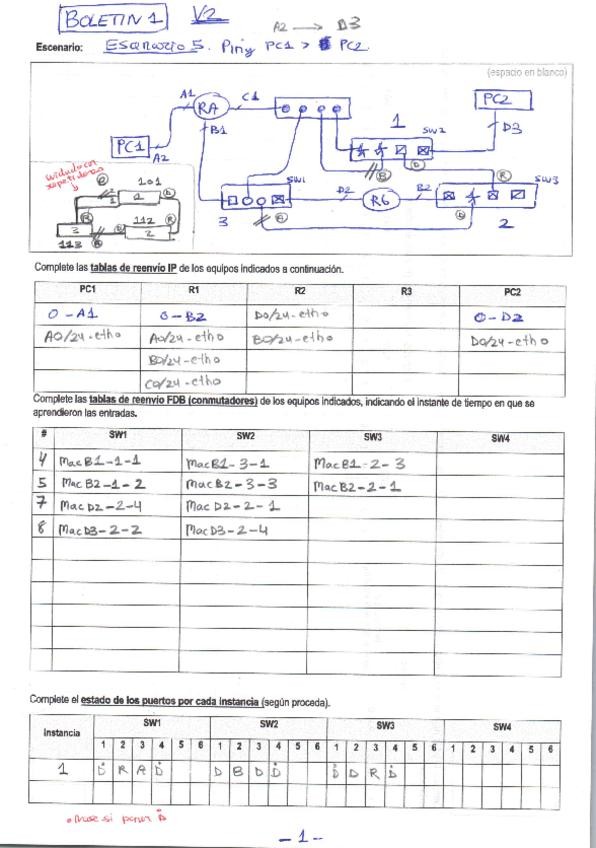 BOLETIN 1 V2
A2 → D3
Escenario: Escenario 5. Ping PC1 > PC2
(espacio en blanco)
A1 RA C1
PC2
1
PC1 A2 B1 SW2 D3
101
SW1 D2 R6 B2 SW3
1
112
3 2
113
3 2
Complete las tablas de reenvío IP de los equipos indicados a continuación.
PC1 R1 R2 R3 PC2
0 - A1 0 - B2 D0/24-eth0 0 - D2
A0/24-eth0 A0/24-eth0 B0/24-eth0 D0/24-eth0
B0/24-eth0
C0/24-eth0
Complete las tablas de reenvío FDB (conmutadores) de los equipos indicados, indicando el instante de tiempo en que se
aprendieron las entradas.
# SW1 SW2 SW3 SW4
4 Mac B1-1-1 Mac B1-3-1 Mac B1-2-3
5 Mac B2-1-2 Mac B2-3-3 Mac B2-2-1
7 Mac D2-2-4 Mac D2-2-1
8 Mac D3-2-2 Mac D3-2-4
Complete el estado de los puertos por cada instancia (según proceda).
Instancia SW1 SW2 SW3 SW4
1 2 3 4 5 6 1 2 3 4 5 6 1 2 3 4 5 6 1 2 3 4 5 6
1 D R A D D B D D D D R D
- 1 -